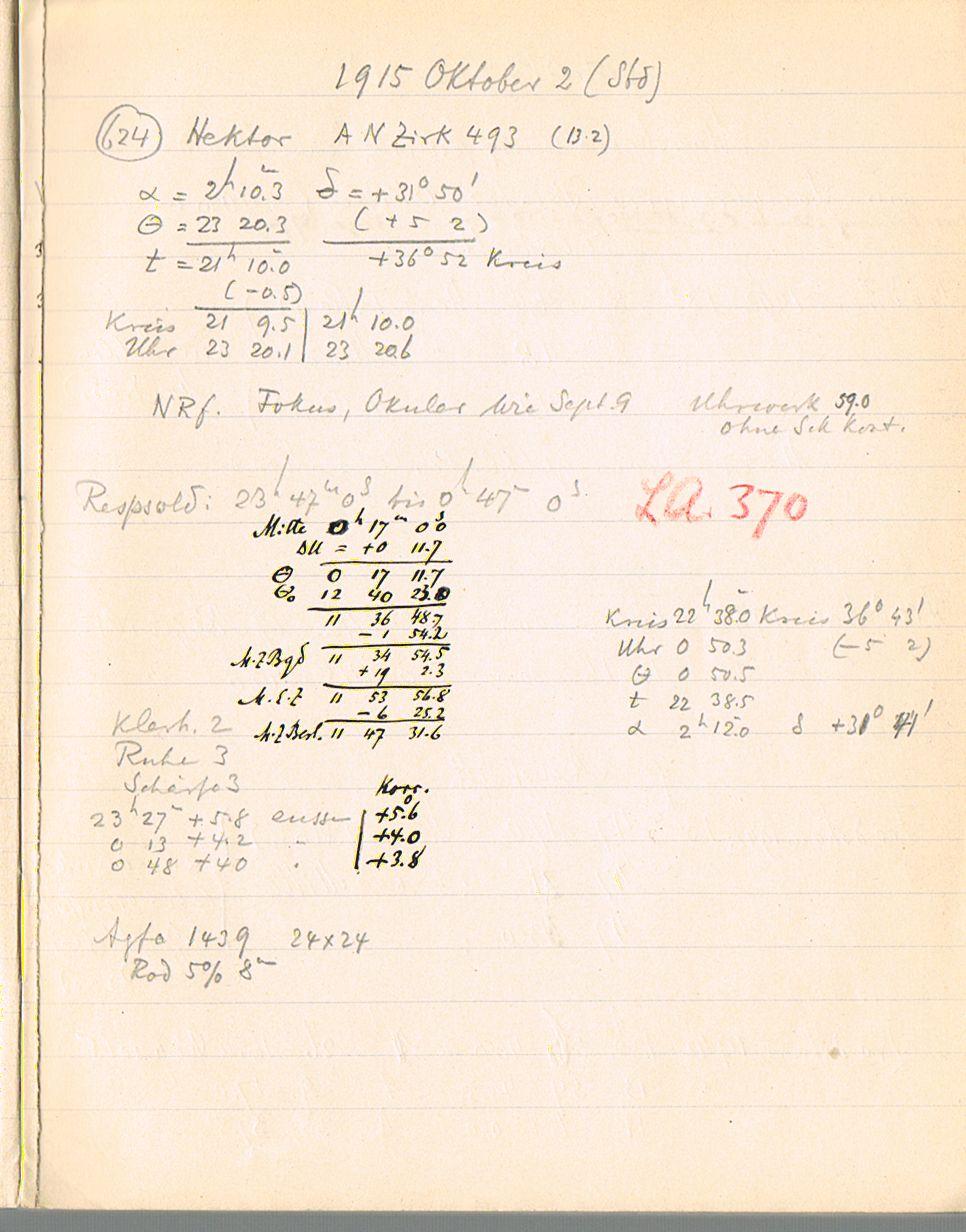 1915 Oktober 2 (Std)
624 Hektor AN Zirk 493 (13.2)
α = 2h 10.3m δ = +31° 50'
Θ = 23 20.3 (+5 2)
t = 21h 10.0m +36° 52 Kreis
(-0.5)
Kreis 21 9.5 | 21h 10.0
Uhr 23 20.1 | 23 20.6
NRf. Fokus, Okular wie Sept. 9 Uhrwerk 59.0
ohne Sek Kont.
Repsold: 23h 47m 0s bis 0h 47m 0s.
LA. 370
Mitte 0h 17m 0.0s
ΔU = +0 11.7
Θ 0 17 11.7
Θo 12 40 23.0
11 36 48.7
-1 54.2
M.Z Bgd 11 34 54.5
+19 2.3
M.E.Z 11 53 56.8
-6 25.2
M.Z Berl. 11 47 31.6
Kreis 22h 38.0m Kreis 36° 43'
Uhr 0 50.3 (-5 2)
Θ 0 50.5
t 22 38.5
α 2h 12.0m δ +31° 41'
Klarh. 2
Ruhe 3
Schärfe 3
Korr.
23h 27m +5.8 aussen | +5.6°
0 13 +4.2 " | +4.0
0 48 +40 " | +3.8
Agfa 1439 24x24
Rod 5% 8m